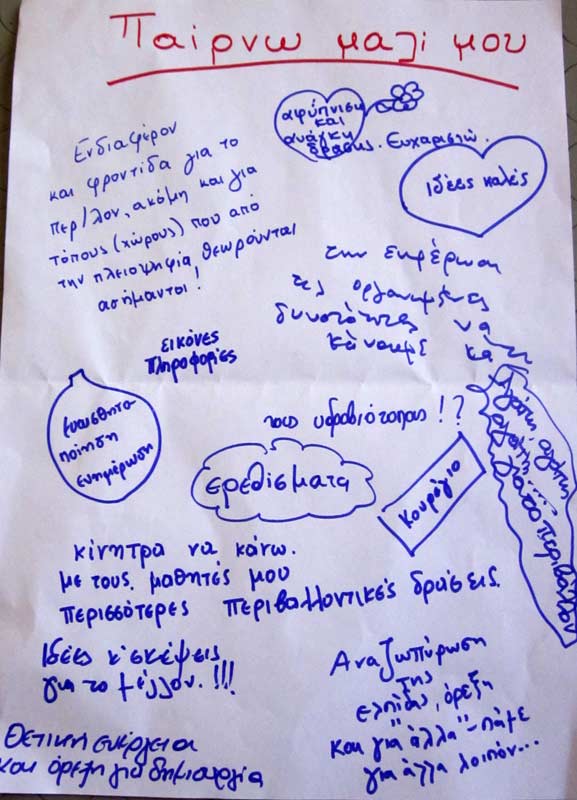 Παίρνω μαζί μου
αφύπνιση
και
ανάγκη
δράσης. Ευχαριστώ.
Ιδέες καλές
Ενδιαφέρον
και φροντίδα για το
περ/λον, ακόμη και για
τόπους (χώρους) που από
την πλειοψηφία θεωρούνται
ασήμαντοι!
την ενημέρωση
τις οργανωμένες
δυνατότητες να
κάνουμε κάτι
εικόνες
πληροφορίες
ευαισθητο-
ποίηση
ενημέρωση
τους υδροβιότοπους!?
ερεθίσματα
Κουράγιο
αγάπη
για το περιβάλλον
κίνητρα να κάνω.
με τους μαθητές μου
περισσότερες περιβαλλοντικές δράσεις.
Ιδέες κ' σκέψεις
για το μέλλον.!!!
Αναζωπύρωση
της
ελπίδας, όρεξη
και για "άλλα" - πάμε
για άλλα λοιπόν...
Θετική ενέργεια
και όρεξη για δημιουργία